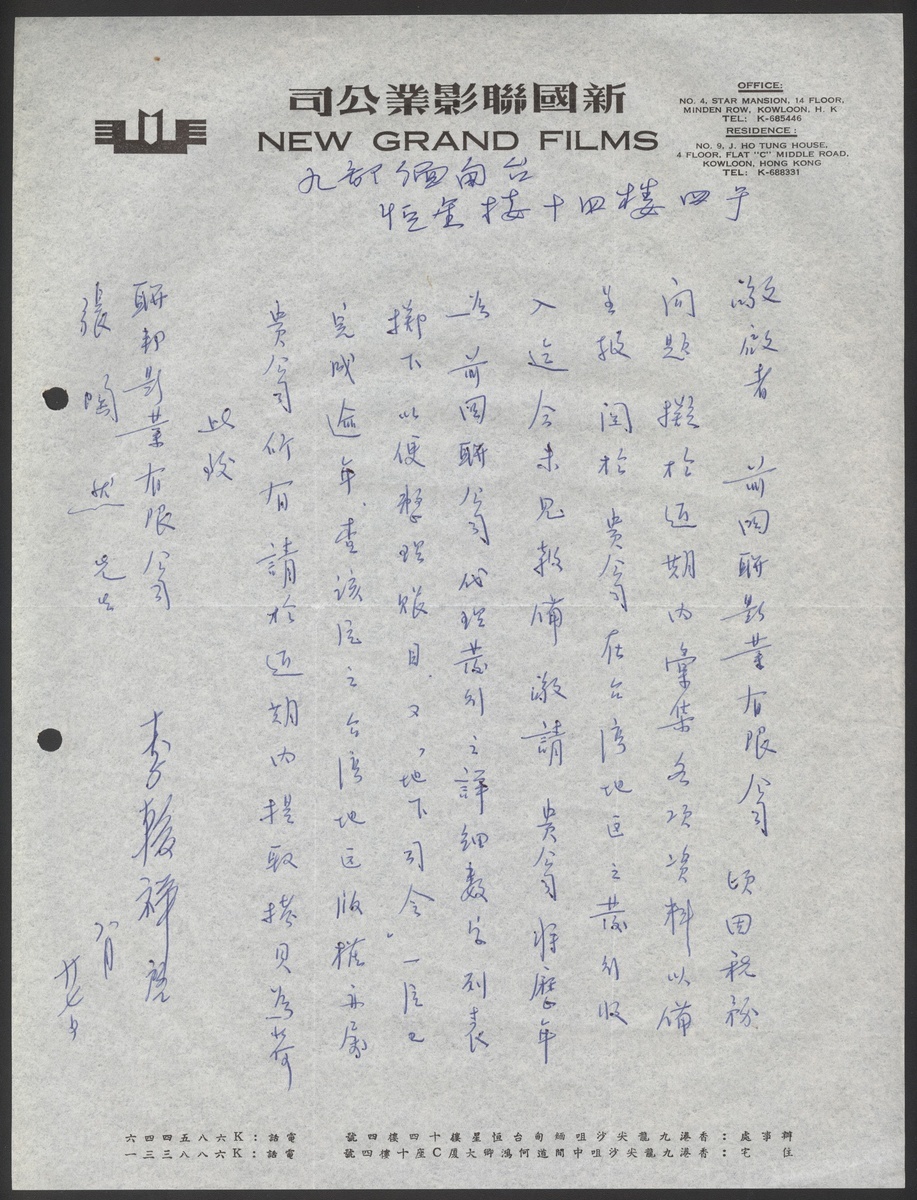 司公業影聯國新
NEW GRAND FILMS
OFFICE:
NO. 4, STAR MANSION, 14 FLOOR,
MINDEN ROW, KOWLOON, H. K
TEL: K-685446
RESIDENCE:
NO. 9, J. HO TUNG HOUSE,
4 FLOOR, FLAT "C" MIDDLE ROAD,
KOWLOON, HONG KONG
TEL: K-688331
九龍緬甸台
恒星楼十四楼四号
敬啟者 前国聯影業有限公司 頃因税務
問題 擬於近期內彙集各項資料以備
呈报 関於 貴公司在台湾地区之發行收
入迄今未見報備 敬請 貴公司將歷年
為前国聯公司代理發行之詳細数字列表
擲下以便整理賬目.又,“地下司令”一片已
完成逾年,查該片之台湾地区版權亦屬
貴公司所有 請於近期內提取拷贝為荷
此致
聯邦影業有限公司
張陶然先生
李翰祥啟
八月
廿七日
號四樓四十樓星恒台甸緬咀沙尖龍九港香:處事辦
六四四五八六K:話電
號四樓十座C廈大卿鴻何道間中咀沙尖龍九港香:宅住
一三三八八六K:話電